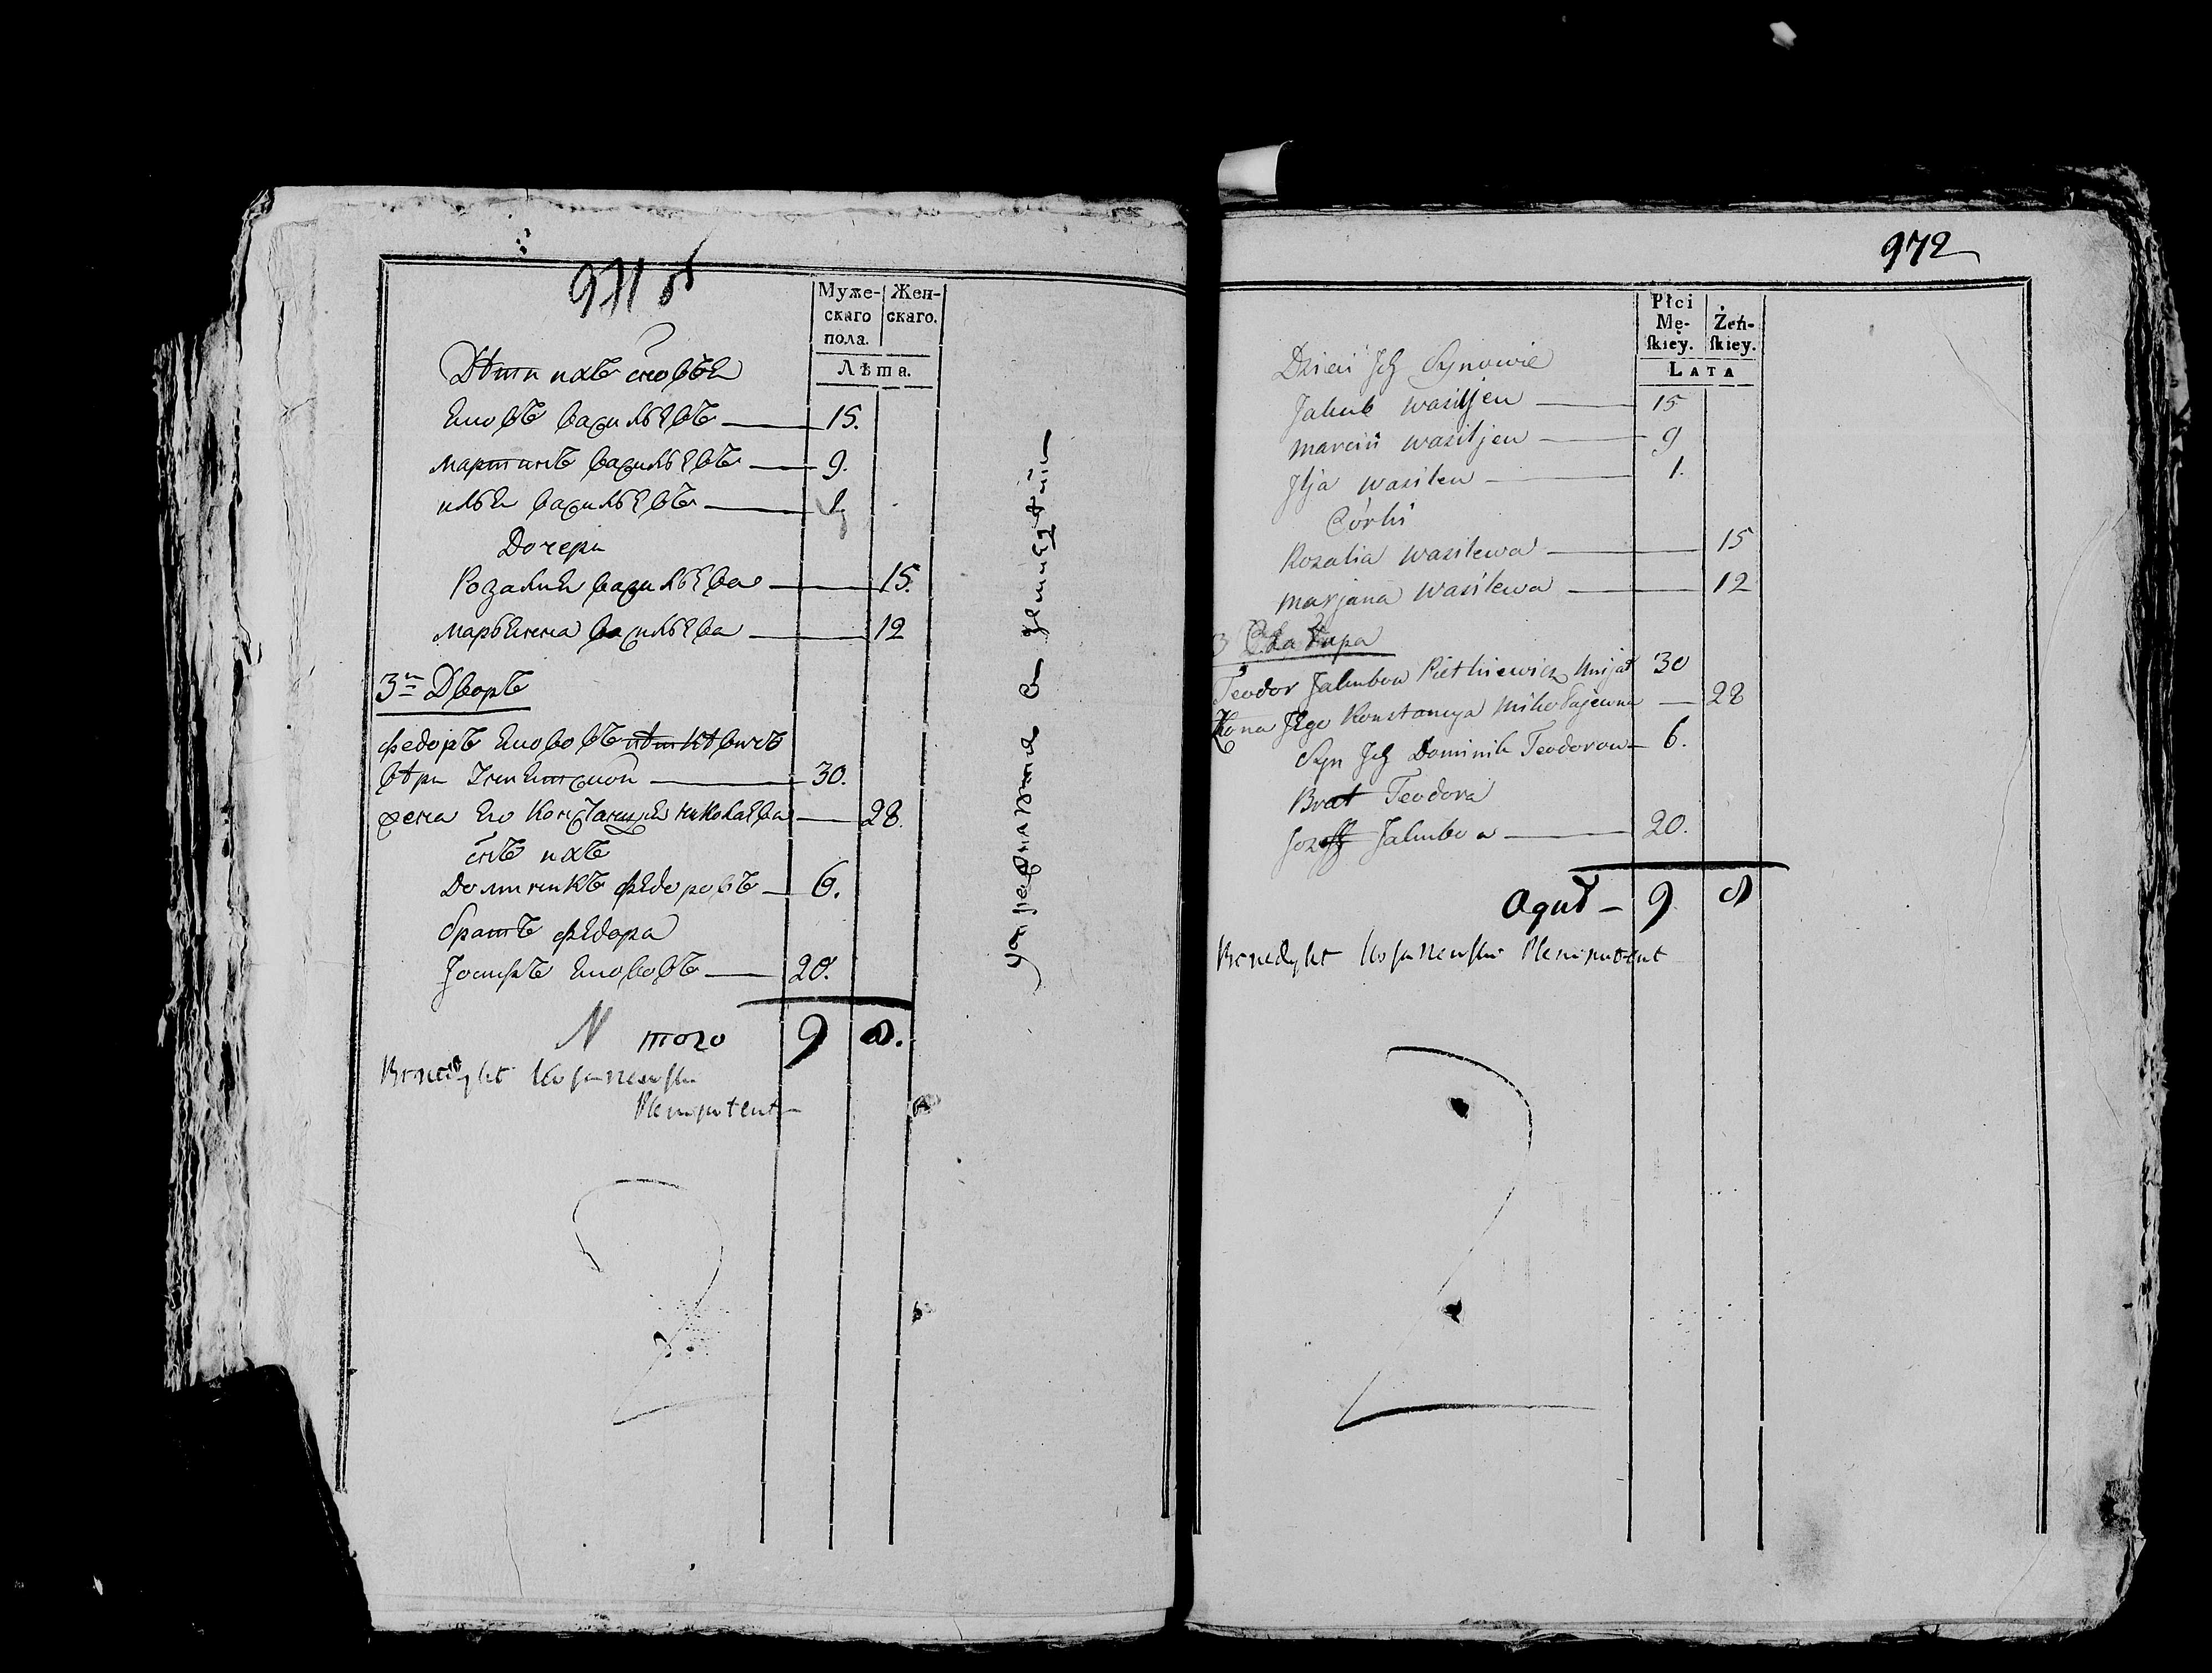 971 об
Муже-скаго пола. Жен-скаго.
Лѣта.
Дѣти ихъ сновья
Яковъ Васильевъ — 15.
Мартинъ Васильевъ — 9.
илья Васильевъ — 1
Дочери
Розалия Васильева — 15.
Марьянна Васильева — 12
3й Дворъ
Федоръ Якововъ Пѣткѣвичъ
вѣры Униятской — 30.
жена Его Констанцыя Николаева — 28.
снъ ихъ
Доминикъ Федоровъ — 6.
братъ Федора
Iосифъ Якововъ — 20.
И того 9 8.
Benedykt
Plenipotent
972
Płci Mę-skiey. Żeń-skiey.
LATA
Dzieci Jch Synowie
Jakub Wasiljew — 15
Marcin Wasiljew — 9
Jlja Wasilew — 1.
Córki
Rozalia Wasilewa — 15
Marjana Wasilewa — 12
3 Chałupa
Teodor Jakubow Pietkiewicz Unijat 30
Żona Jego Konstancya Mikołajewna — 28
Syn Jch Dominik Teodorow — 6.
Brat Teodora
Jozeff Jakubow — 20.
Oguł — 9 8
Benedykt Plenipotent